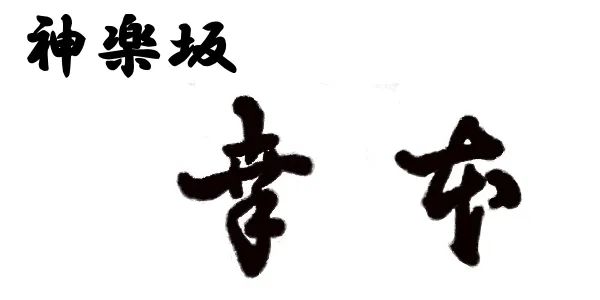 神楽坂
幸本